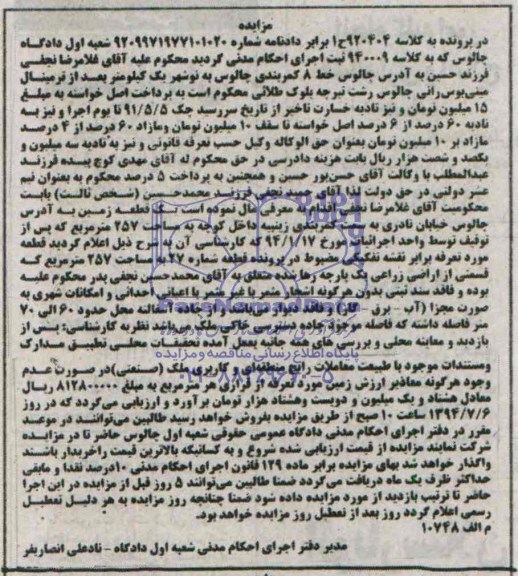 مزایده
در پرونده به کلاسه ۹۲۰۴۰۴ح۱ برابر دادنامه شماره ۹۲۰۹۹۷۱۹۷۷۱۰۱۰۲۰ شعبه اول دادگاه
چالوس که به کلاسه ۹۴۰۰۰۹ ثبت اجرای احکام مدنی گردید محکوم علیه آقای غلامرضا نجفی
فرزند حسین به آدرس چالوس خط ۸ کمربندی چالوس به نوشهر یک کیلومتر بعد از ترمینال
مینی‌بوس‌رانی چالوس رشت تیرچه بلوک طلائی محکوم است به پرداخت اصل خواسته به مبلغ
۱۵ میلیون تومان و نیز تادیه خسارت تاخیر از تاریخ سررسید چک ۹۱/۵/۵ تا یوم اجرا و نیز به
تادیه ۶۰ درصد از ۶ درصد اصل خواسته تا سقف ۱۰ میلیون تومان ومازاد ۶۰ درصد از ۴ درصد
مازاد بر ۱۰ میلیون تومان بعنوان حق الوکاله وکیل حسب تعرفه قانونی و نیز به تادیه سه میلیون و
یکصد و شصت هزار ریال بابت هزینه دادرسی در حق محکوم له آقای مهدی کوچ پیده فرزند
عبدالمطلب با وکالت آقای حسن‌پور حسین و همچنین به پرداخت ۵ درصد محکوم به بعنوان نیم
عشر دولتی در حق دولت لذا آقای حمید نجفی فرزند محمدحسین (شخص ثالث) بابت
محکومیت آقای غلامرضا نجفی اقدام به معرفی مال نموده است یک قطعه زمین به آدرس
چالوس خیابان نادری به سمت کمربندی زینبیه داخل کوچه به مساحت ۲۵۷ مترمربع که پس از
توقیف توسط واحد اجرائیات مورخ ۹۴/۱/۱۷ که کارشناسی آن به شرح ذیل اعلام گردید قطعه
مورد تعرفه برابر نقشه تفکیکی مضبوط در پرونده قطعه شماره ۲۷ به مساحت ۲۵۷ مترمربع که
قسمتی از اراضی زراعی یک پارچه رها شده متعلق به آقای محمدحسن نجفی پدر محکوم علیه
بوده و فاقد سند ثبتی بدون هرگونه اشجار مثمر یا غیر مثمر یا اعیانی احداثی و امکانات شهری به
صورت مجزا (آب – برق – گاز) و فاقد دیوار می‌باشد و از جاده آسفالته محل حدود ۶۰ الی ۷۰
متر فاصله داشته که فاصله موجود جاده دسترسی خاکی ملک می‌باشد نظریه کارشناسی: پس از
بازدید و معاینه محلی و بررسی های همه جانبه بعمل آمده تحقیقات محلی تطبیق مدارک
ومستندات موجود با طبیعت معاملات رایج منطقه‌ای و کاربری ملک (صنعتی) در صورت عدم
وجود هرگونه معاذیر ارزش زمین مورد تعرفه از قرار هر مترمربع به مبلغ ۸۱۲۸۰۰۰۰ ریال
معادل هشتاد و یک میلیون و دویست وهشتاد هزار تومان برآورد و ارزیابی می‌گردد که در روز
۱۳۹۴/۷/۶ ساعت ۱۰ صبح از طریق مزایده بفروش خواهد رسید طالبین می‌توانند در موعد
مقرر در دفتر اجرای احکام مدنی دادگاه عمومی حقوقی شعبه اول چالوس حاضر تا در مزایده
شرکت نمایند مزایده از قیمت ارزیابی شده شروع و به کسانیکه بالاترین قیمت راخریدار باشند
واگذار خواهد شد بهای مزایده برابر ماده ۱۲۹ قانون اجرای احکام مدنی ۱۰درصد نقدا و مابقی
حداکثر ظرف یک ماه دریافت می‌گردد ضمنا طالبین می‌توانند ۵ روز قبل از مزایده در این اجرا
حاضر تا ترتیب بازدید از مورد مزایده داده شود ضمنا چنانچه روز مزایده به هر دلیل تعطیل
رسمی اعلام گردد روز بعد از تعطیل روز مزایده خواهد بود.
م الف ۱۰۷۴۸
مدیر دفتر اجرای احکام مدنی شعبه اول دادگاه – نادعلی انصاریفر
پایگاه اطلاع رسانی مناقصه و مزایده